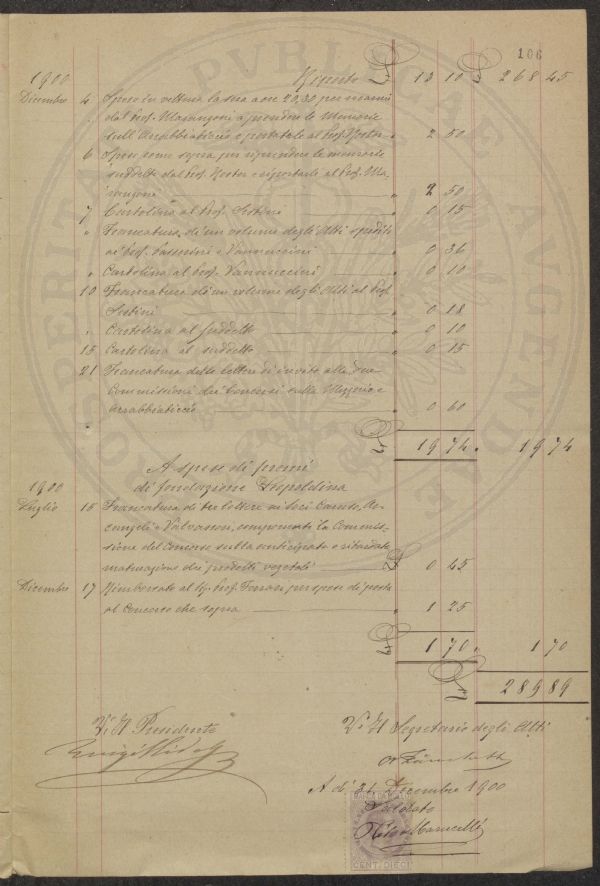 106
1900 Riporto £ 13 10 £ 268 45
Dicembre 4 Spese in vettura la sera a ore 20,30 per recarsi
dal Prof. Marangoni a prendere le Memorie
sull'Arrabbiaticcio e portatale al Prof. " 2 50
6 Spese come sopra per riprendere le memorie
suddette dal Prof. e riportarle al Prof. Ma-
rangoni " 2 50
7 Cartolina al Prof. Sestini " 0 15
" Francatura di un volume degli Atti spedito
ai Prof. Passerini e Vannuccini " 0 36
" Cartolina al Prof. Vannuccini " 0 10
10 Francatura di un volume degli Atti al Prof.
Sestini " 0 18
" Cartolina al suddetto " 0 10
15 Cartolina al suddetto " 0 15
21 Francatura delle lettere di invito alle due
Commissioni dei Concorsi sulla Mezzeria e
Arrabbiaticcio " 0 60
£ 19 74 " 19 74
A spese di premi
di fondazione Leopoldina
1900
Luglio 15 Francatura di tre lettere ai Soci Caruso, Ar-
cangeli e Valvassori, componenti la Commis-
sione del Concorso sulla anticipata o ritardata
maturazione dei prodotti vegetali £ 0 45
Dicembre 17 Rimborsato al Sig. Prof. per spese di posta
al Concorso che sopra " 1 25
£ 1 70 " 1 70
£ 289 89
V° Il Presidente V° Il Segretario degli Atti
Luigi Ridolfi
A dì 31 Dicembre 1900
Saldato
Marucelli
CENT. DIECI
PROSPERITATI PVBLICAE AVGENDAE